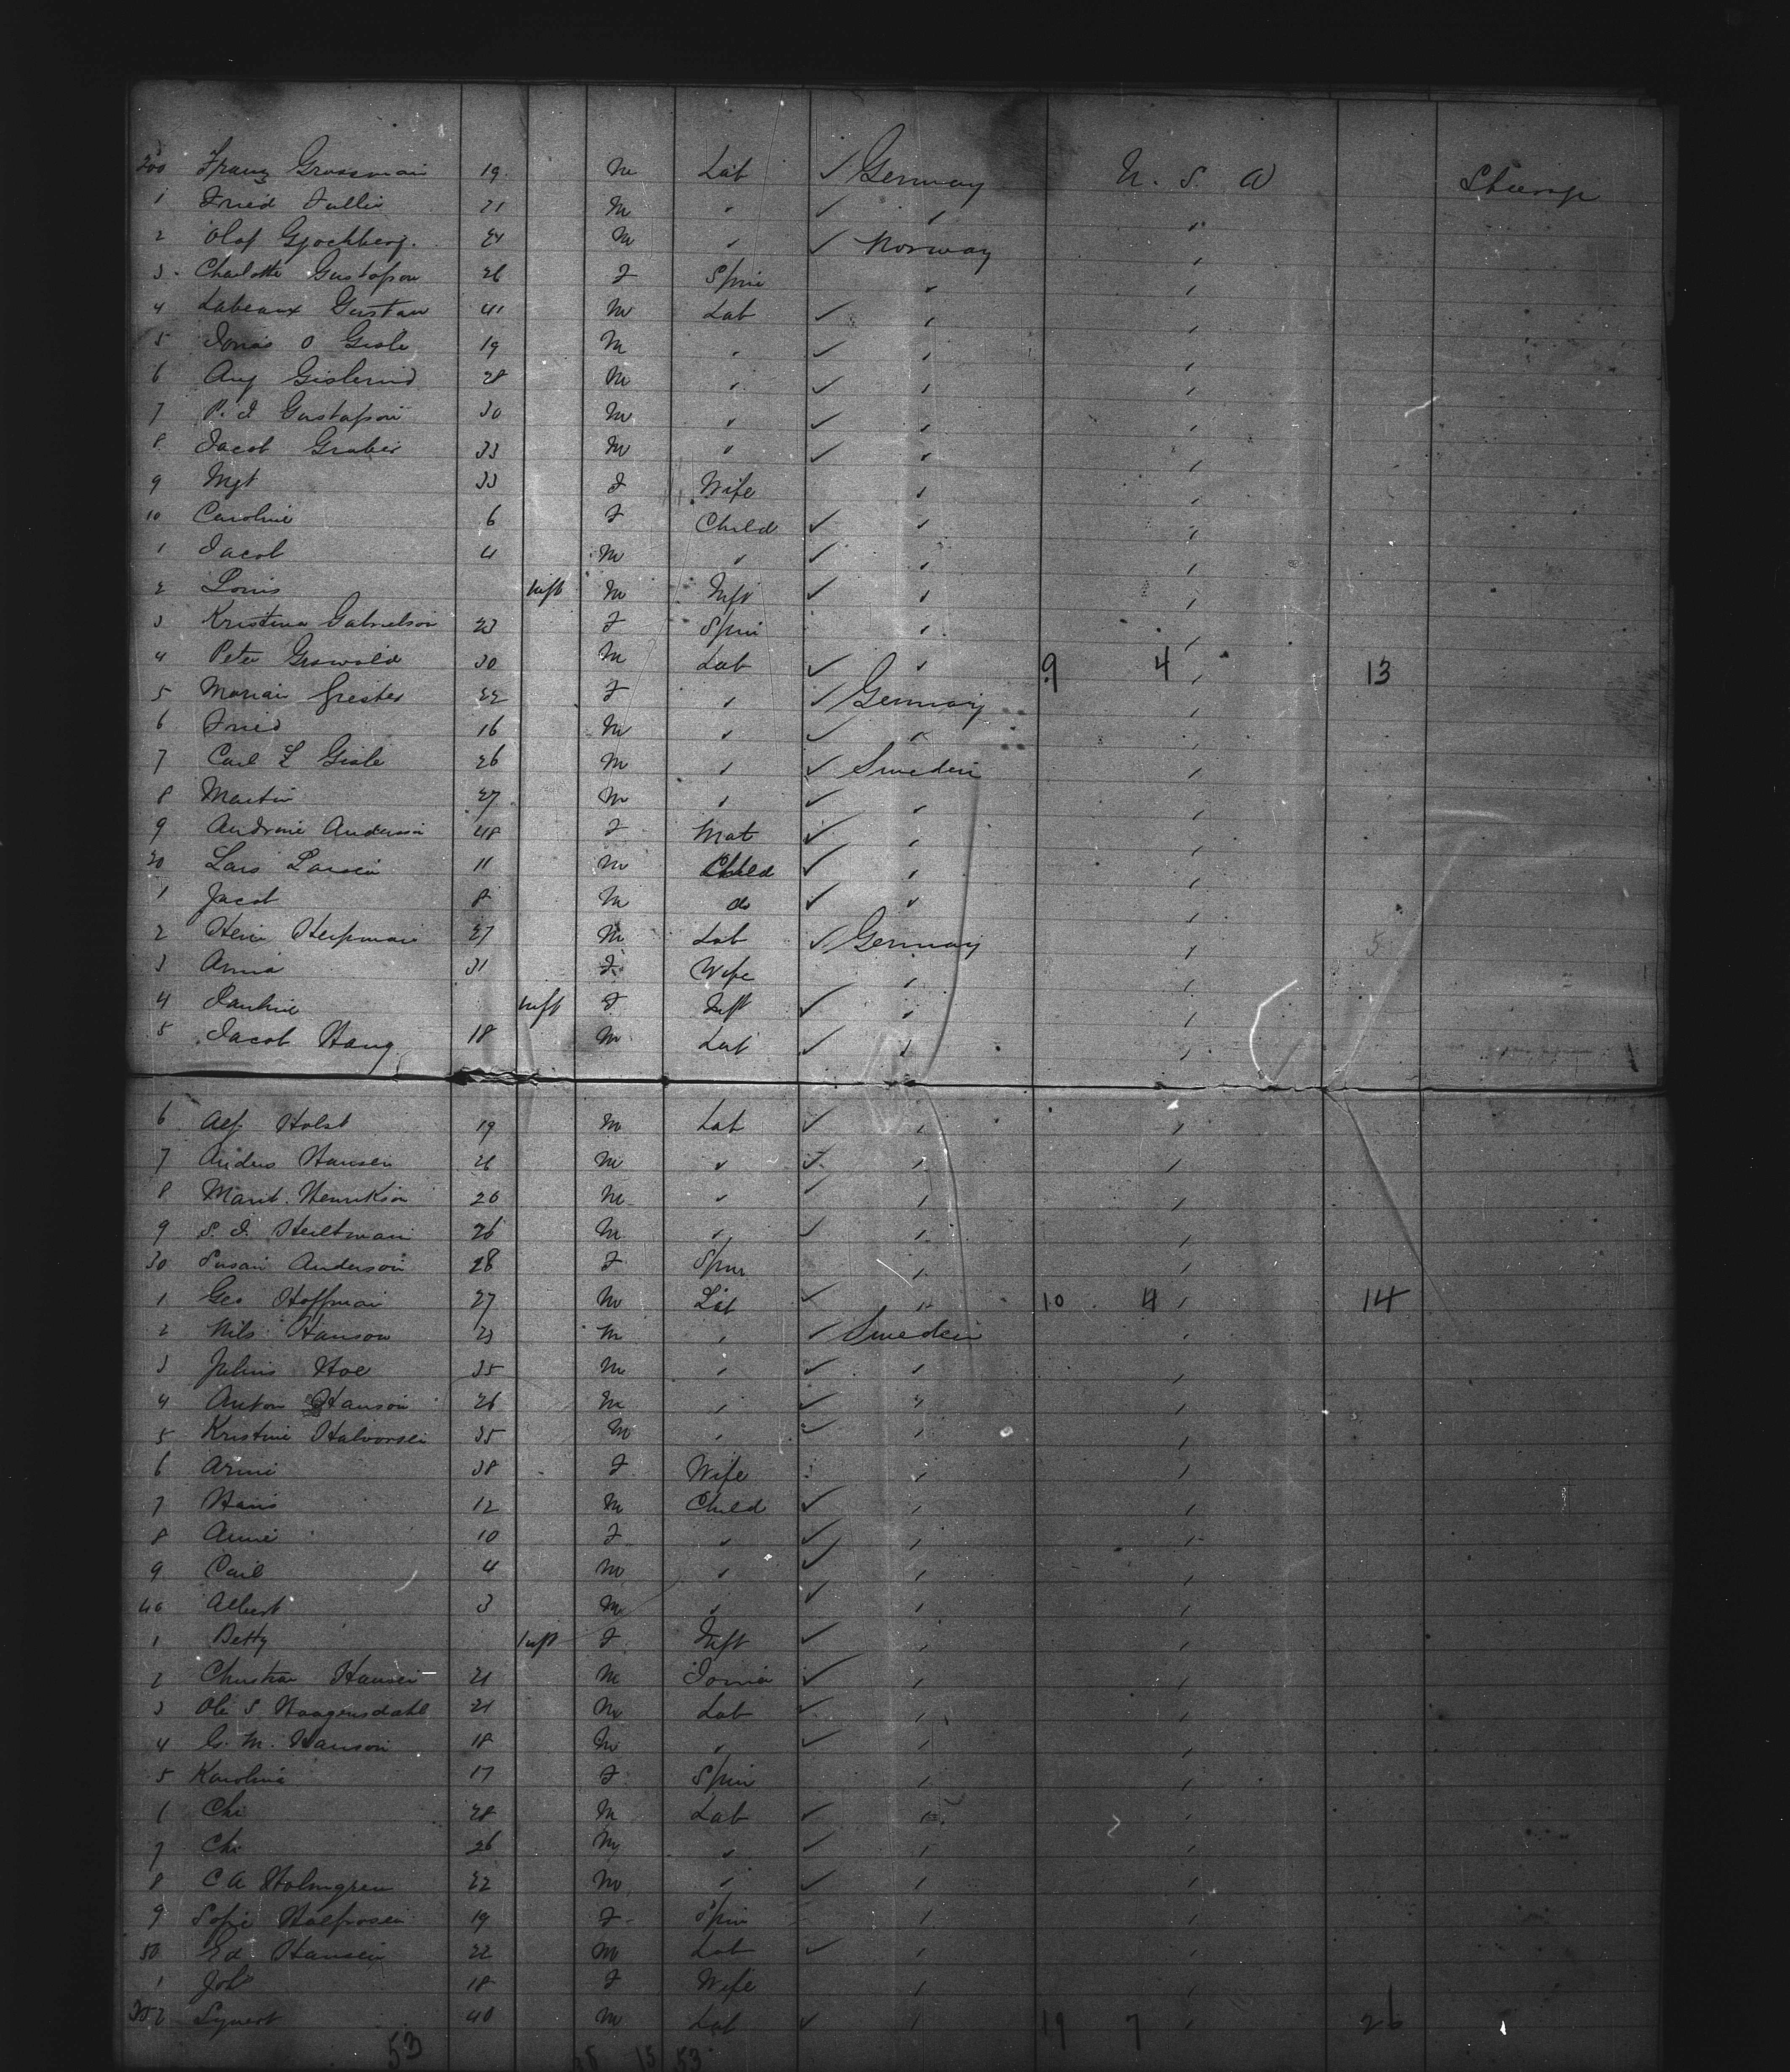 200 Franz Grossman 19 M Lab ✓ Germany U. S. A Steerage
1 Fried 21 M " ✓ "
2 Olof Gjochberg. 24 M " ✓ Norway "
3 Charlotte Gustafson 26 F Spin " "
4 Labeaux Gustav 41 M Lab ✓ " "
5 Jonas O Gisle 19 M " ✓ " "
6 Aug 28 M " ✓ " "
7 P. J Gustafson 30 M " ✓ " "
8 Jacob Gruber 33 M " ✓ " "
9 Mgt 33 F Wife " "
10 Caroline 6 F Child ✓ " "
1 Jacob 4 M " ✓ " "
2 Louis Inft M Inft ✓ " "
3 Kristina Gabrielson 23 F Spin " "
4 Peter Griswold 30 M Lab ✓ " 9 4 " 13
5 22 F " ✓ Germany "
6 Fried 16 M " ✓ " "
7 Carl L Gisle 26 M " ✓ Sweden "
8 Martin 27 M " ✓ " "
9 Anderson 48 F Mat ✓ " "
20 Lars Larsen 11 M Child ✓ " "
1 Jacob 8 M do ✓ " "
2 Hein 27 M Lab ✓ Germany "
3 Anna 31 F Wife " "
4 Pauline Inft F Inft ✓ " "
5 Jacob Haug 18 M Lab ✓ " "
6 Alf Holst 19 M Lab ✓ " "
7 Anders Hansen 26 M " ✓ " "
8 Marit. Henrikson 20 M " ✓ " "
9 S. J. 26 M " ✓ " "
30 Susan Anderson 28 F Spin " "
1 Geo Hoffman 27 M Lab ✓ " 10 4 " 14
2 Nils Hanson 23 M " ✓ Sweden "
3 Julius Hoe 35 M " ✓ " "
4 Anton Hanson 26 M " ✓ " "
5 Kristine Halvorsen 35 M " ✓ " "
6 Anne 38 F Wife " "
7 Hans 12 M Child ✓ " "
8 Anne 10 F " ✓ " "
9 Carl 4 M " ✓ " "
40 Albert 3 M " ✓ " "
1 Betty Inft F Inft ✓ " "
2 Christian Hansen 21 M ✓ " "
3 Ole S Haagensdahl 21 M Lab ✓ " "
4 G. M. Hanson 18 M " ✓ " "
5 Karolina 17 F Spin " "
6 Chr 28 M Lab ✓ " "
7 Chr 26 M " ✓ " "
8 C A Holmgren 22 M " ✓ " "
9 Sofie 19 F Spin " "
50 Ed Hansen 22 M Lab ✓ " "
1 Joh 18 F Wife " "
252 40 M Lab ✓ " 19 7 " 26
53 38 15 53